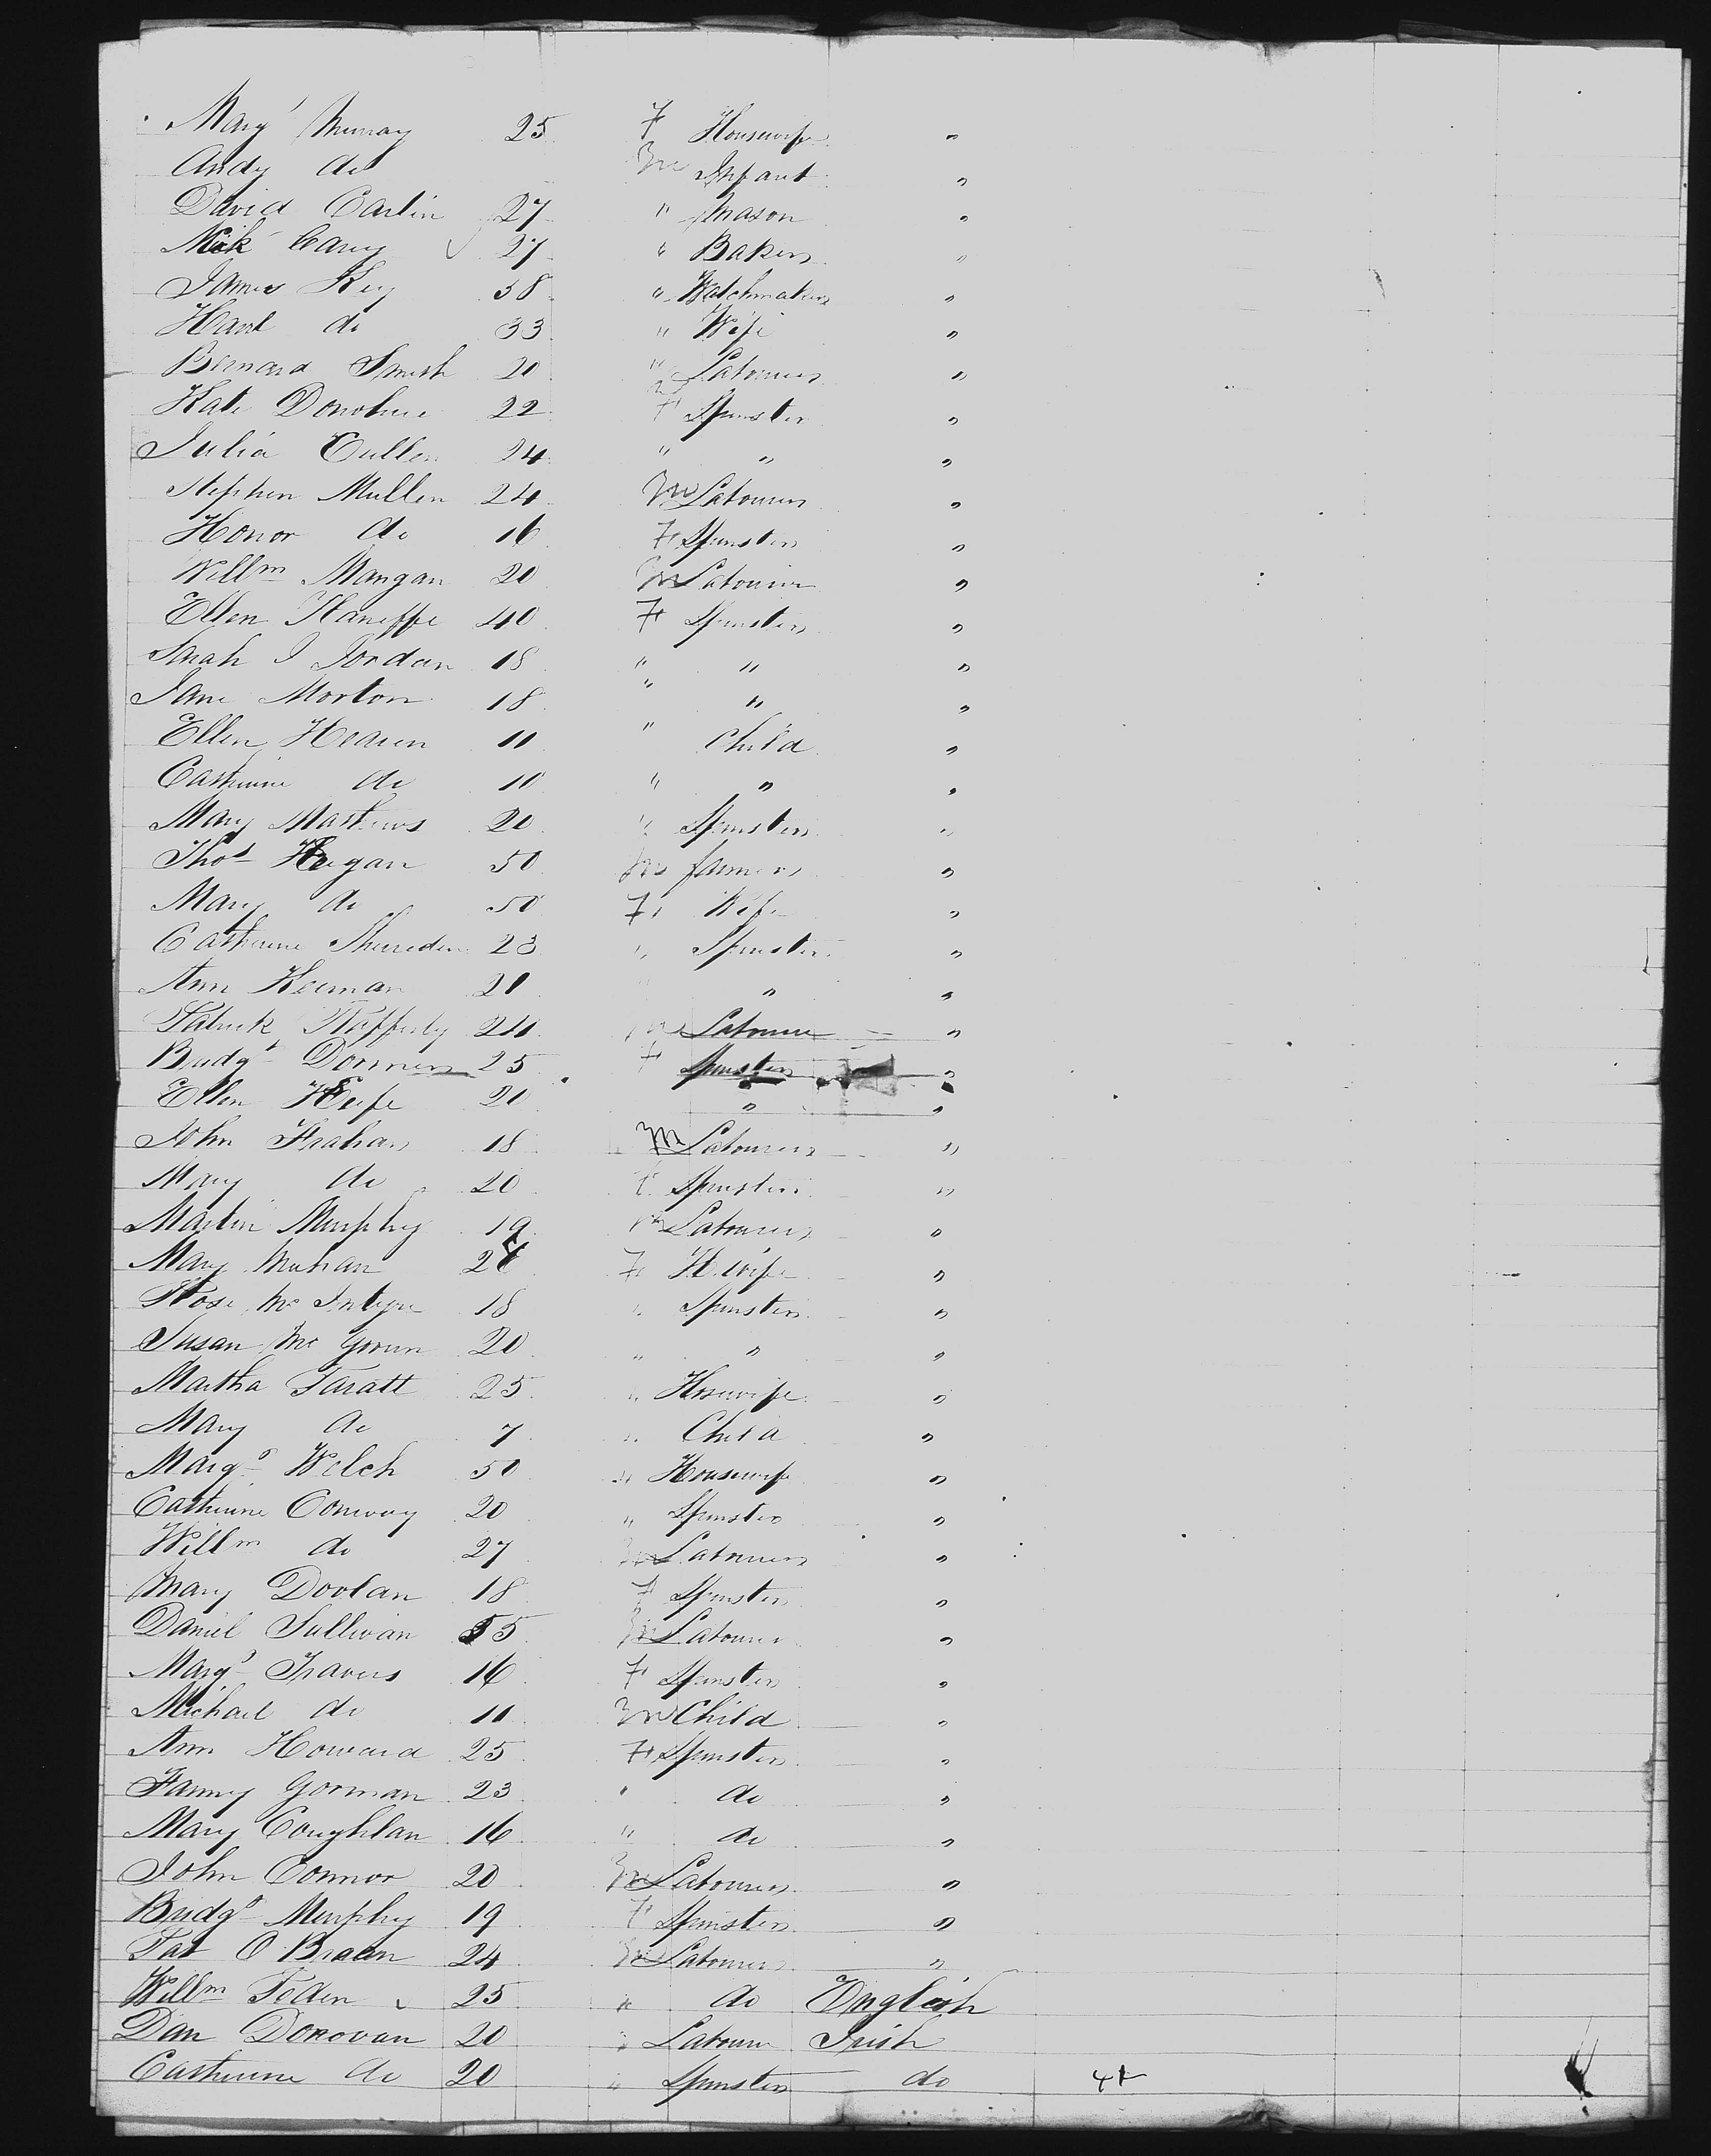 Mary Murray 25 F Housewife "
Andy do M Infant "
David Carlin 27 " Mason "
Mick Carey 27 " Baker "
James Key 38 " Watchmaker "
do 33 " Wife "
Bernard Smith 20 " Labourer "
Kate Donohue 22 F Spinster "
Julia Cullen 24 " " "
Stephen Mullen 24 M Labourer "
Honor do 16 F Spinster "
Willm Mangan 20 M Labourer "
Ellen 40 F Spinster "
Sarah J Jordan 18 " " "
Jane Morton 18 " " "
Ellen Hearn 11 " Child "
Catherine do 10 " " "
Mary Mathews 20 " Spinster "
Thos Hegan 50 M farmer "
Mary do 50 F Wife "
Catherine Sheridan 23 " Spinster "
Ann Keernan 20 " " "
Patrick Rafferty 24 M Labourer "
Bridgt 25 F Spinster "
Ellen Keefe 20 " "
John 18 M Labourer "
Mary do 20 F Spinster "
Martin Murphy 19 M Labourer "
Mary 24 F H.wife "
Rose McIntyre 18 " Spinster "
Susan McGovern 20 " " "
Martha Taratt 25 " Hosewife "
Mary do 7 " Child "
Margt Welch 50 " Housewife "
Catherine Conway 20 " Spinster "
Willm do 27 M Labourer "
Mary Doolan 18 F Spinster "
Daniel Sullivan 55 M Labourer "
Margt Travers 16 F Spinster "
Michael do 11 M Child "
Ann Howard 25 F Spinster "
Fanny Gorman 23 " do "
Mary Coughlan 16 " do "
John Connor 20 M Labourer "
Bridgt Murphy 19 F Spinster "
Pat O Braen 24 M Labourer "
Willm Foden 25 " do English
Dan Donovan 20 " Labourer Irish
Catherine do 20 " Spinster do